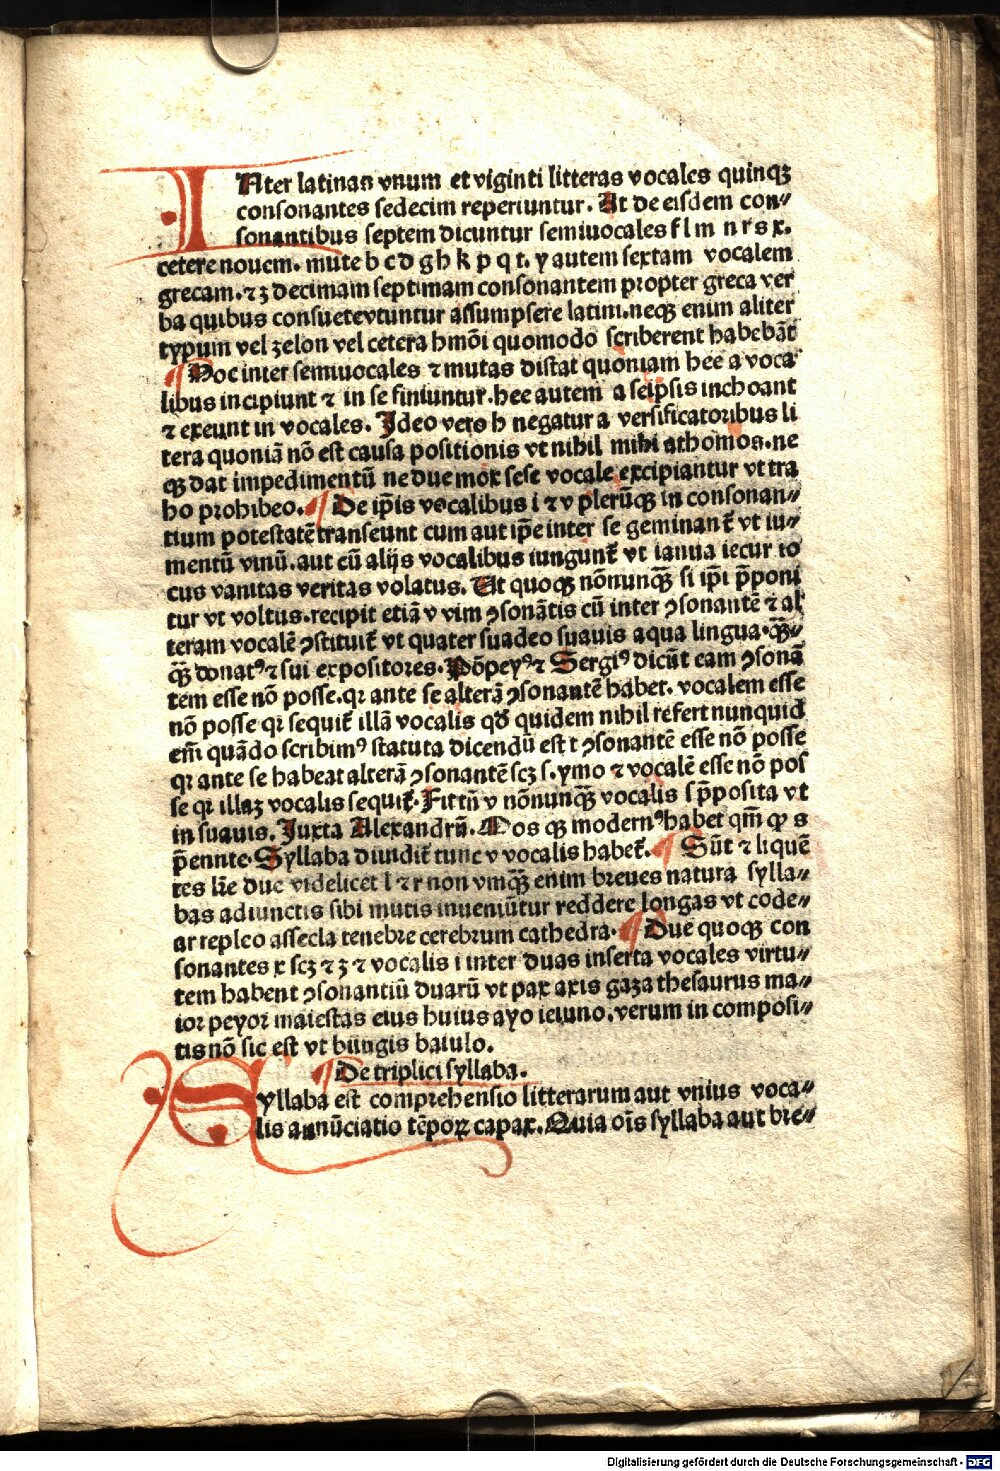 INter latinas vnum et viginti litteras vocales quinqꝫ
consonantes sedecim reperiuntur. At de eisdem con⸗
sonantibus septem dicuntur semiuocales f l m n r s x.
cetere nouem. mute b c d g h k p q t. y autem sextam vocalem
grecam. ⁊ ʒ decimam septimam consonantem propter greca ver
ba quibus consuete vtuntur assumpsere latini. neqꝫ enim aliter
typum vel zelon vel cetera hmōi quomodo scriberent habebāt
¶ Hoc inter semiuocales ⁊ mutas distat quoniam hee a voca
libus incipiunt ⁊ in se finiuntur. hee autem a seipsis inchoant
⁊ exeunt in vocales. Ideo vero h negatur a versificatoribus li
tera quoniā nō est causa positionis vt nihil mihi athomos. ne
qꝫ dat impedimentū ne due mox sese vocale excipiantur vt tra
ho prohibeo. ¶ De ip̄is vocalibus i ⁊ v plerūqꝫ in consonan⸗
tium potestatē transeunt cum aut ip̄e inter se geminant᷑ vt iu⸗
mentū vinū. aut cū alijs vocalibus iungunt᷑ vt ianua iecur io
cus vanitas veritas volatus. At quoqꝫ nōnunqꝫ̄ si ip̄i p̄poni
tur vt voltus. recipit etiā v vim ꝯsonātis cū inter ꝯsonantē ⁊ al
teram vocalē ꝯstituit᷑ vt quater suadeo suauis aqua lingua. qꝫ̄⸗
qꝫ̄ donatꝰ ⁊ sui expositores. Pōpeyꝰ ⁊ Sergiꝰ dicūt eam ꝯsonā
tem esse nō posse. qꝛ ante se alterā ꝯsonantē habet. vocalem esse
nō posse qꝛ sequit᷑ illā vocalis qd̄ quidem nihil refert nunquid
em̄ quādo scribimꝰ statuta dicendū est t ꝯsonantē esse nō posse
qꝛ ante se habeat alterā ꝯsonantē scꝫ s. ymo ⁊ vocalē esse nō pos
se qꝛ illaꝫ vocalis sequit᷑. Fit tn̄ v nōnunqꝫ̄ vocalis s p̄posita vt
in suauis. Juxta Alexandrū. Mos qꝫ modernꝰ habet qm̄ ꝙ s
p̄eunte. Syllaba diuidit᷑ tunc v vocalis habet᷑. ¶ Sūt ⁊ liquē
tes lr̄e due videlicet l ⁊ r non vnqꝫ̄ enim breues natura sylla⸗
bas adiunctis sibi mutis inueniūtur reddere longas vt code⸗
ar repleo assecla tenebre cerebrum cathedra. ¶ Due quoqꝫ con
sonantes x scꝫ ⁊ ʒ ⁊ vocalis i inter duas inserta vocales virtu⸗
tem habent ꝯsonantiū duarū vt pax axis gaza thesaurus ma⸗
ior peyor maiestas eius huius ayo ieiuno. verum in composi⸗
tis nō sic est vt biiugis baiulo.
¶ De triplici syllaba.
Syllaba est comprehensio litterarum aut vnius voca⸗
lis annūciatio tēpoꝝ capax. Quia oīs syllaba aut bre⸗
Digitalisierung gefördert durch die Deutsche Forschungsgemeinschaft - DFG